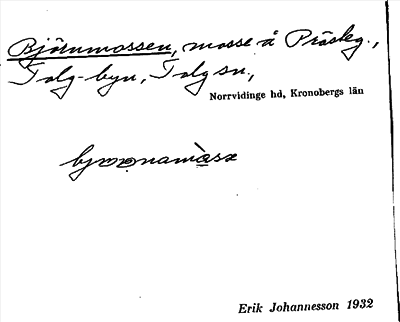 Björnmossen, mosse å Prästg.,
Tolg-byn, Tolg sn,
Norrvidinge hd, Kronobergs län
Erik Johannesson 1932